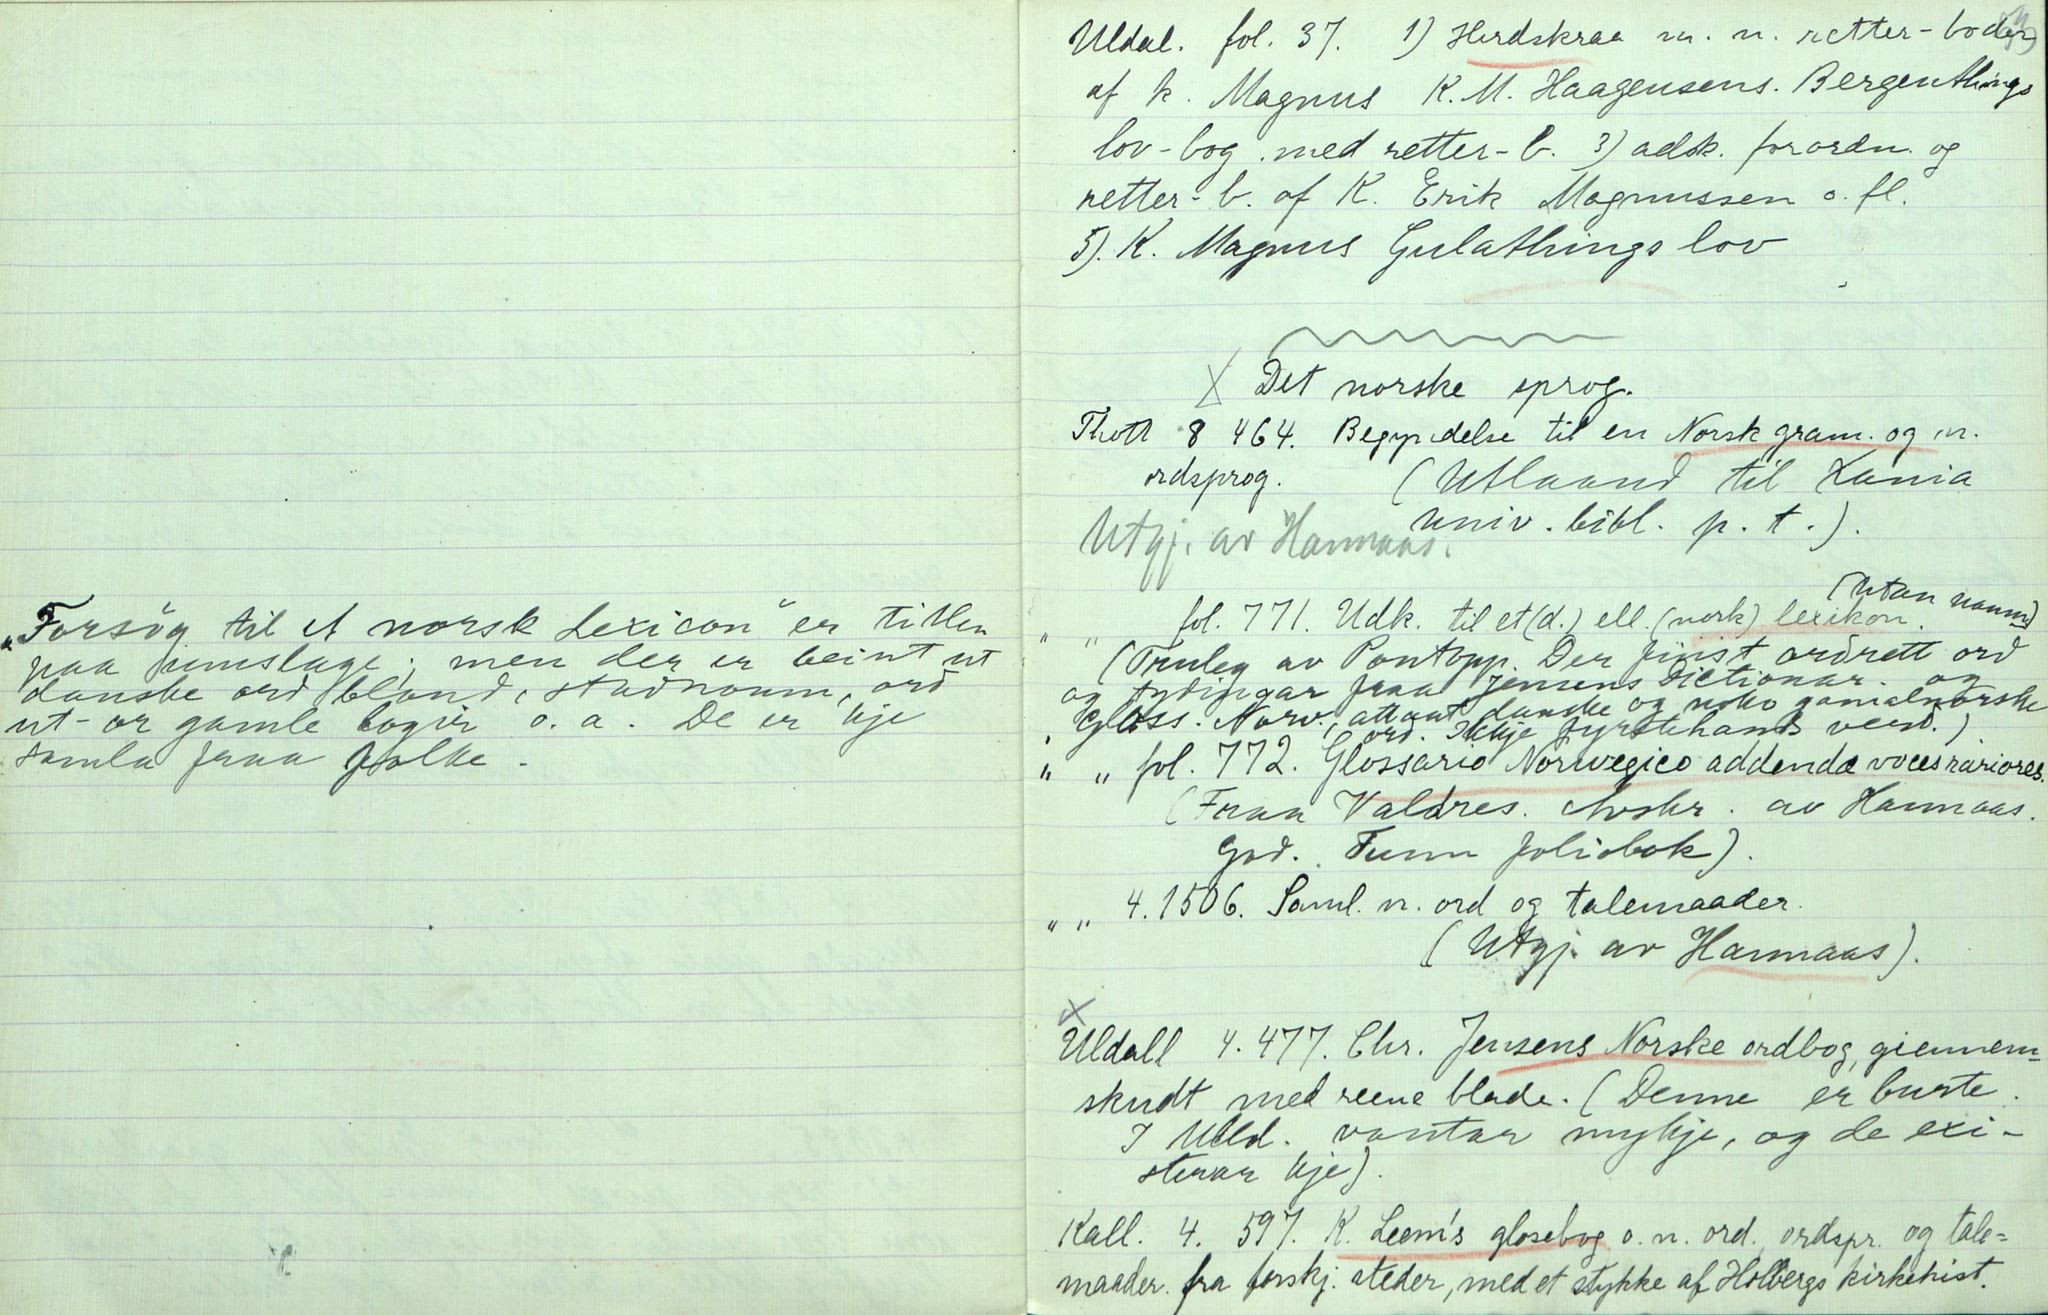 „Forsög til et norsk Lexicon" er titlen
paa umslage; men der er beint ut
danske ord bland, stadnamn, ord
ut-or gamle bøgir o. a. De er kje
samla fraa folke.
Uldal. fol. 37. 1) Hirdskraa m. n. retter-boder
af k. Magnus K. M. Haagensens. Bergenthings
lov-bog med retter-b. 3) adsk. forordn. og
retter-b. af K. Erik Magnussen o. fl.
5). K. Magnus Gulathings lov
X Det norske sprog.
Thott 8 464. Begyndelse til en Norsk gram. og n.
ordsprog. (Utlaand til Xania
univ. bibl. p. t.).
Utgj. av Hannaas.
(utan namn)
" " fol. 771. Udk. til et (d.) ell. (norsk) lexikon.
(Truleg av Pontopp. Der finst ordrett ord
og tydingar fraa Jensens Dictionar. og
Gloss. Norv., attaat danske og noko gamalnorske
ord. Ikkje fyrstehands verd.)
" " fol. 772. Glossario Norwegico addendæ voces rariores.
(Fraa Valdres. Avskr. av Hannaas.
God. Tunn foliobok).
" " 4. 1506. Saml. n. ord og talemaader.
(Utgj. av Hannaas).
X
Uldall 4. 477. Chr. Jensens Norske ordbog, giennem-
skudt med reene blade. (Denne er burte.
I Uld. vantar mykje, og de exi-
sterar kje).
Kall. 4. 597. K. Leem's glosebog o. n. ord. ordspr. og tale-
maader. fra forskj. steder, med et stykke af Holbergs kirkehist.